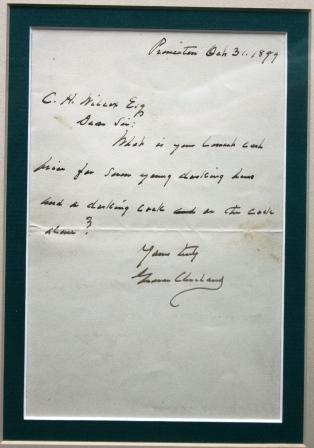 Princeton Oct 31. 1899
C. H. Wilcox Esq
Dear Sir:
What is your lowest cash
price for seven young dorking hens
and a dorking cock and or the cock
alone?
Yours truly
Grover Cleveland